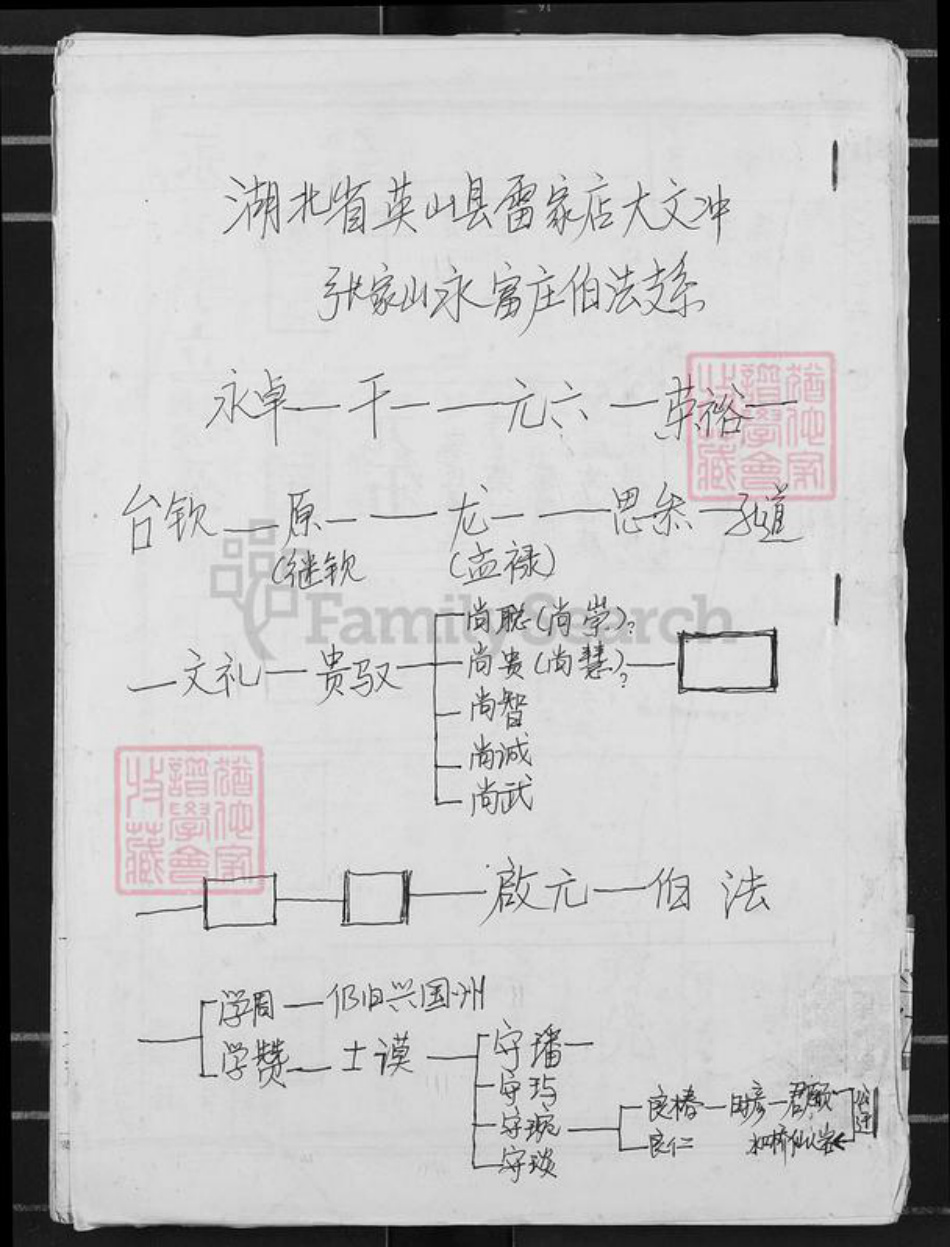 湖北省英山县雷家店大文冲
张家山永富庄伯法支系
永卓—千—元六—荣裕—
台钦—原—龙—思恭—道
(继钦 (孟禄)
尚聪(尚崇)?
—文礼—贵驭—尚贵(尚慧)?—
尚智
尚诚
尚武
啟元—伯法
学周—仍旧兴国州
学赞—士谟—守璠—
守玙
守琬—良椿—君颐
良仁
守琰
FamilySearch
譜學會
收藏
譜學會
收藏